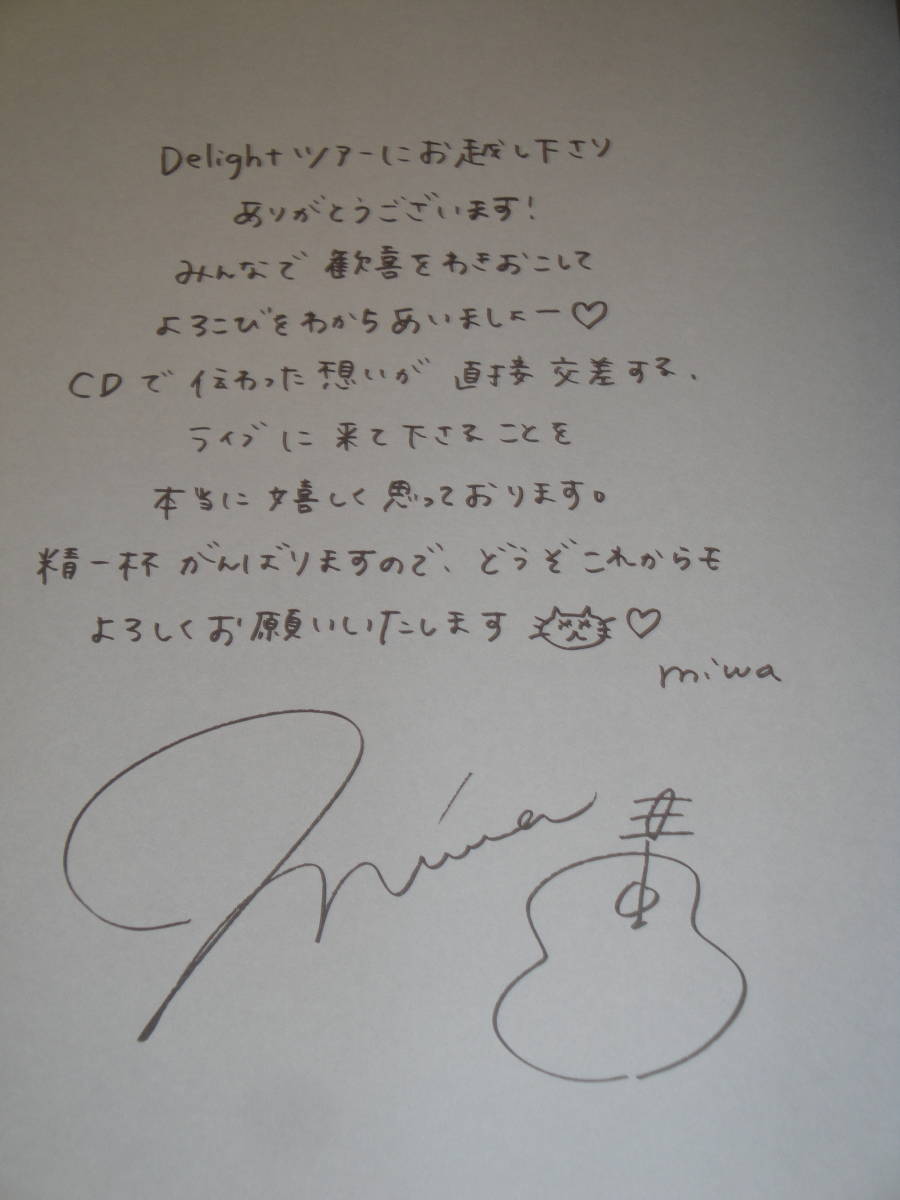 Delightツアーにお越し下さり
ありがとうございます!
みんなで歓喜をわきおこして
よろこびをわからあいましょー♡
CDで伝わった想いが直接交差する、
ライブに来て下さることを
本当に嬉しく思っております。
精一杯がんばりますので、どうぞこれからも
よろしくお願いいたします♡
miwa
miwa